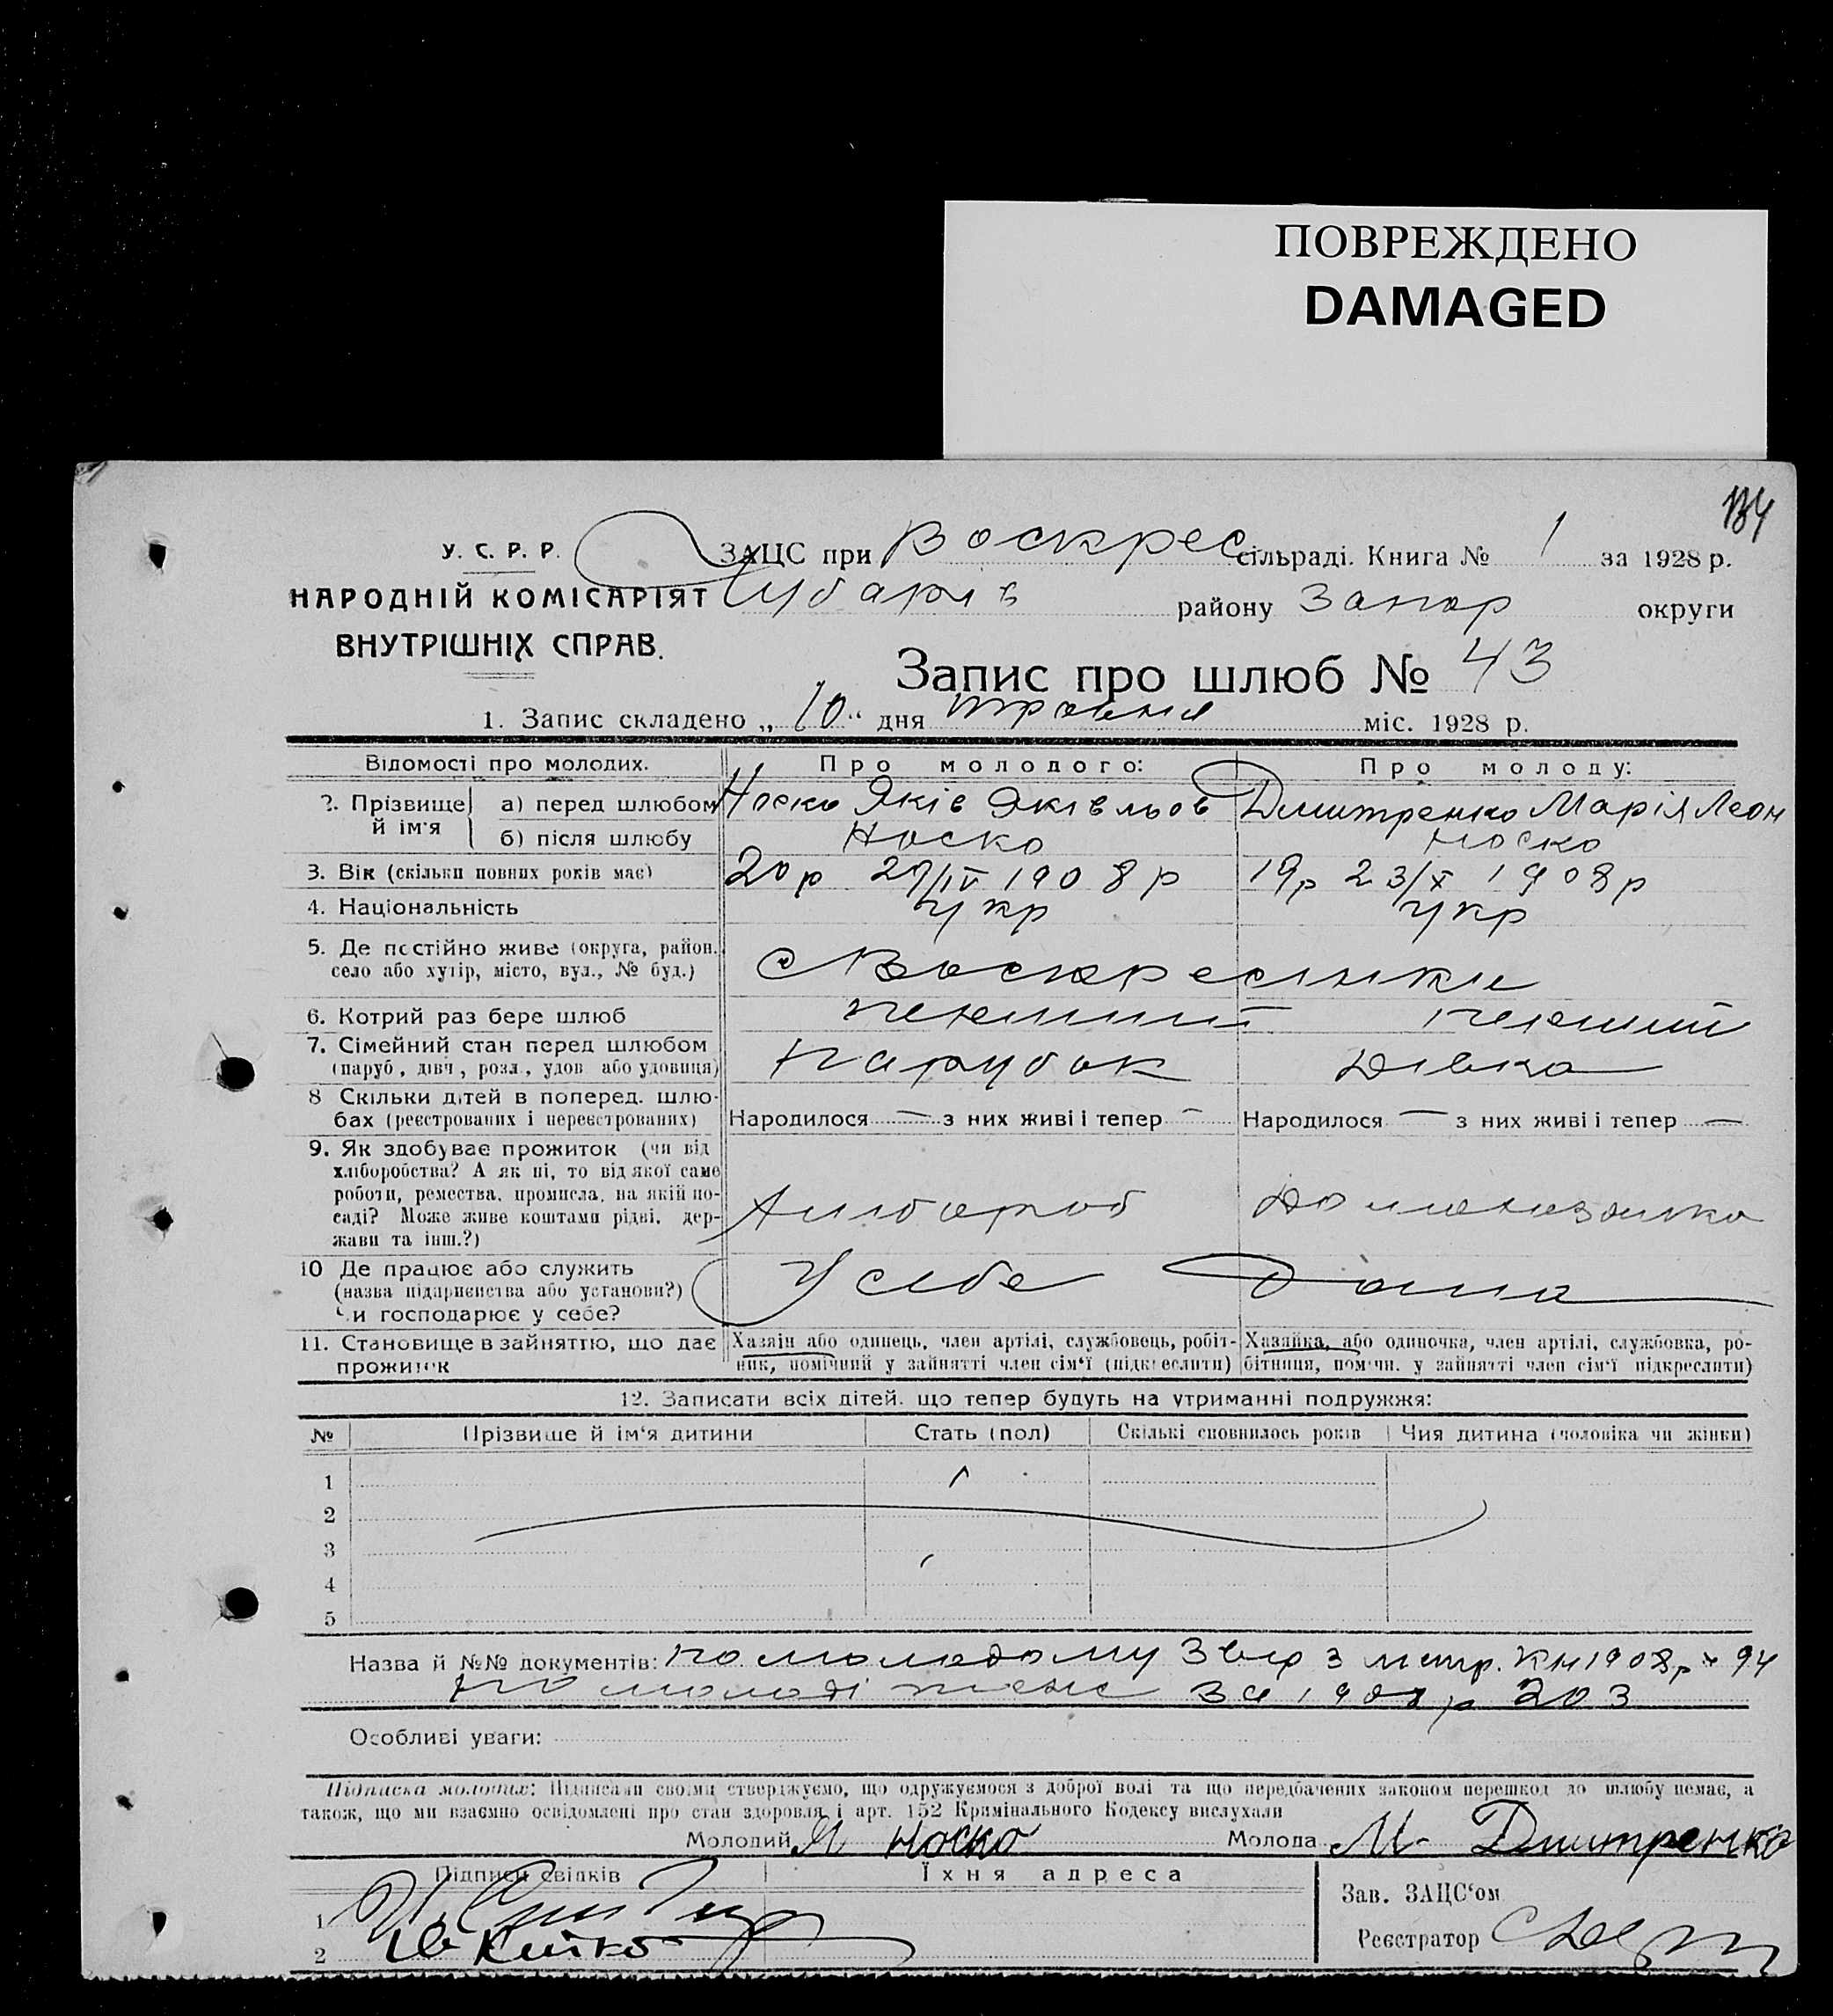 ПОВРЕЖДЕНО
DAMAGED
У. С. Р. Р.
НАРОДНІЙ КОМІСАРІЯТ
ВНУТРІШНІХ СПРАВ.
ЗАЦС при Воскрес сільраді. Книга № 1 за 1928 р.
Чубарів району Запор округи
Запис про шлюб № 43
1. Запис складено „10“ дня травня міс. 1928 р.
Відомості про молодих. Про молодого: Про молоду:
2. Прізвище й ім'я а) перед шлюбом Носко Яків Яківльов Дмитренко Марія Леон
б) після шлюбу Носко Носко
3. Вік (скільки повних років має) 20 р 1908 р 19 р 23/X 1908 р
4. Національність Укр Укр
5. Де постійно живе (округа, район, село або хутір, місто, вул., № буд.) с Воскресінки
6. Котрий раз бере шлюб перший перший
7. Сімейний стан перед шлюбом (паруб., дівч., розл., удов. або удовиця) парубок дівка
8 Скільки дітей в поперед. шлюбах (реєстрованих і нереєстрованих) Народилося — з них живі і тепер — Народилося — з них живі і тепер —
9. Як здобуває прожиток (чи від хліборобства? А як ні, то від якої саме роботи, ремества, промисла, на якій посаді? Може живе коштами рідні, держави та інш.?) Хлібороб
10 Де працює або служить (назва підприємства або установи?) Чи господарює у себе? У себе дома
11. Становище в зайняттю, що дає прожиток Хазяін або одинець, член артілі, службовець, робітник, помічний у зайнятті член сім'ї (підкреслити) Хазяйка, або одиночка, член артілі, службовка, робітниця, помічн. у зайнятті член сім'ї підкреслити)
12. Записати всіх дітей, що тепер будуть на утриманні подружжя:
№ Прізвище й ім'я дитини Стать (пол) Скількі сповнилось років Чия дитина (чоловіка чи жінки)
1
2
3
4
5
Назва й №№ документів: по молодому з метр. Кн 1908 р № 94
по молоді за 1908 р 203
Особливі уваги:
Підписка молодих: Підписами своїми стверджуємо, що одружуємося з доброї волі та що передбачених законом перешкод до шлюбу немає, а
також, що ми взаємно освідомлені про стан здоровля і арт. 152 Кримінального Кодексу вислухали
Молодий Я Носко Молода М. Дмитренко
Підписи свідків Їхня адреса
Зав. ЗАЦС'ом
1
Реєстратор
2